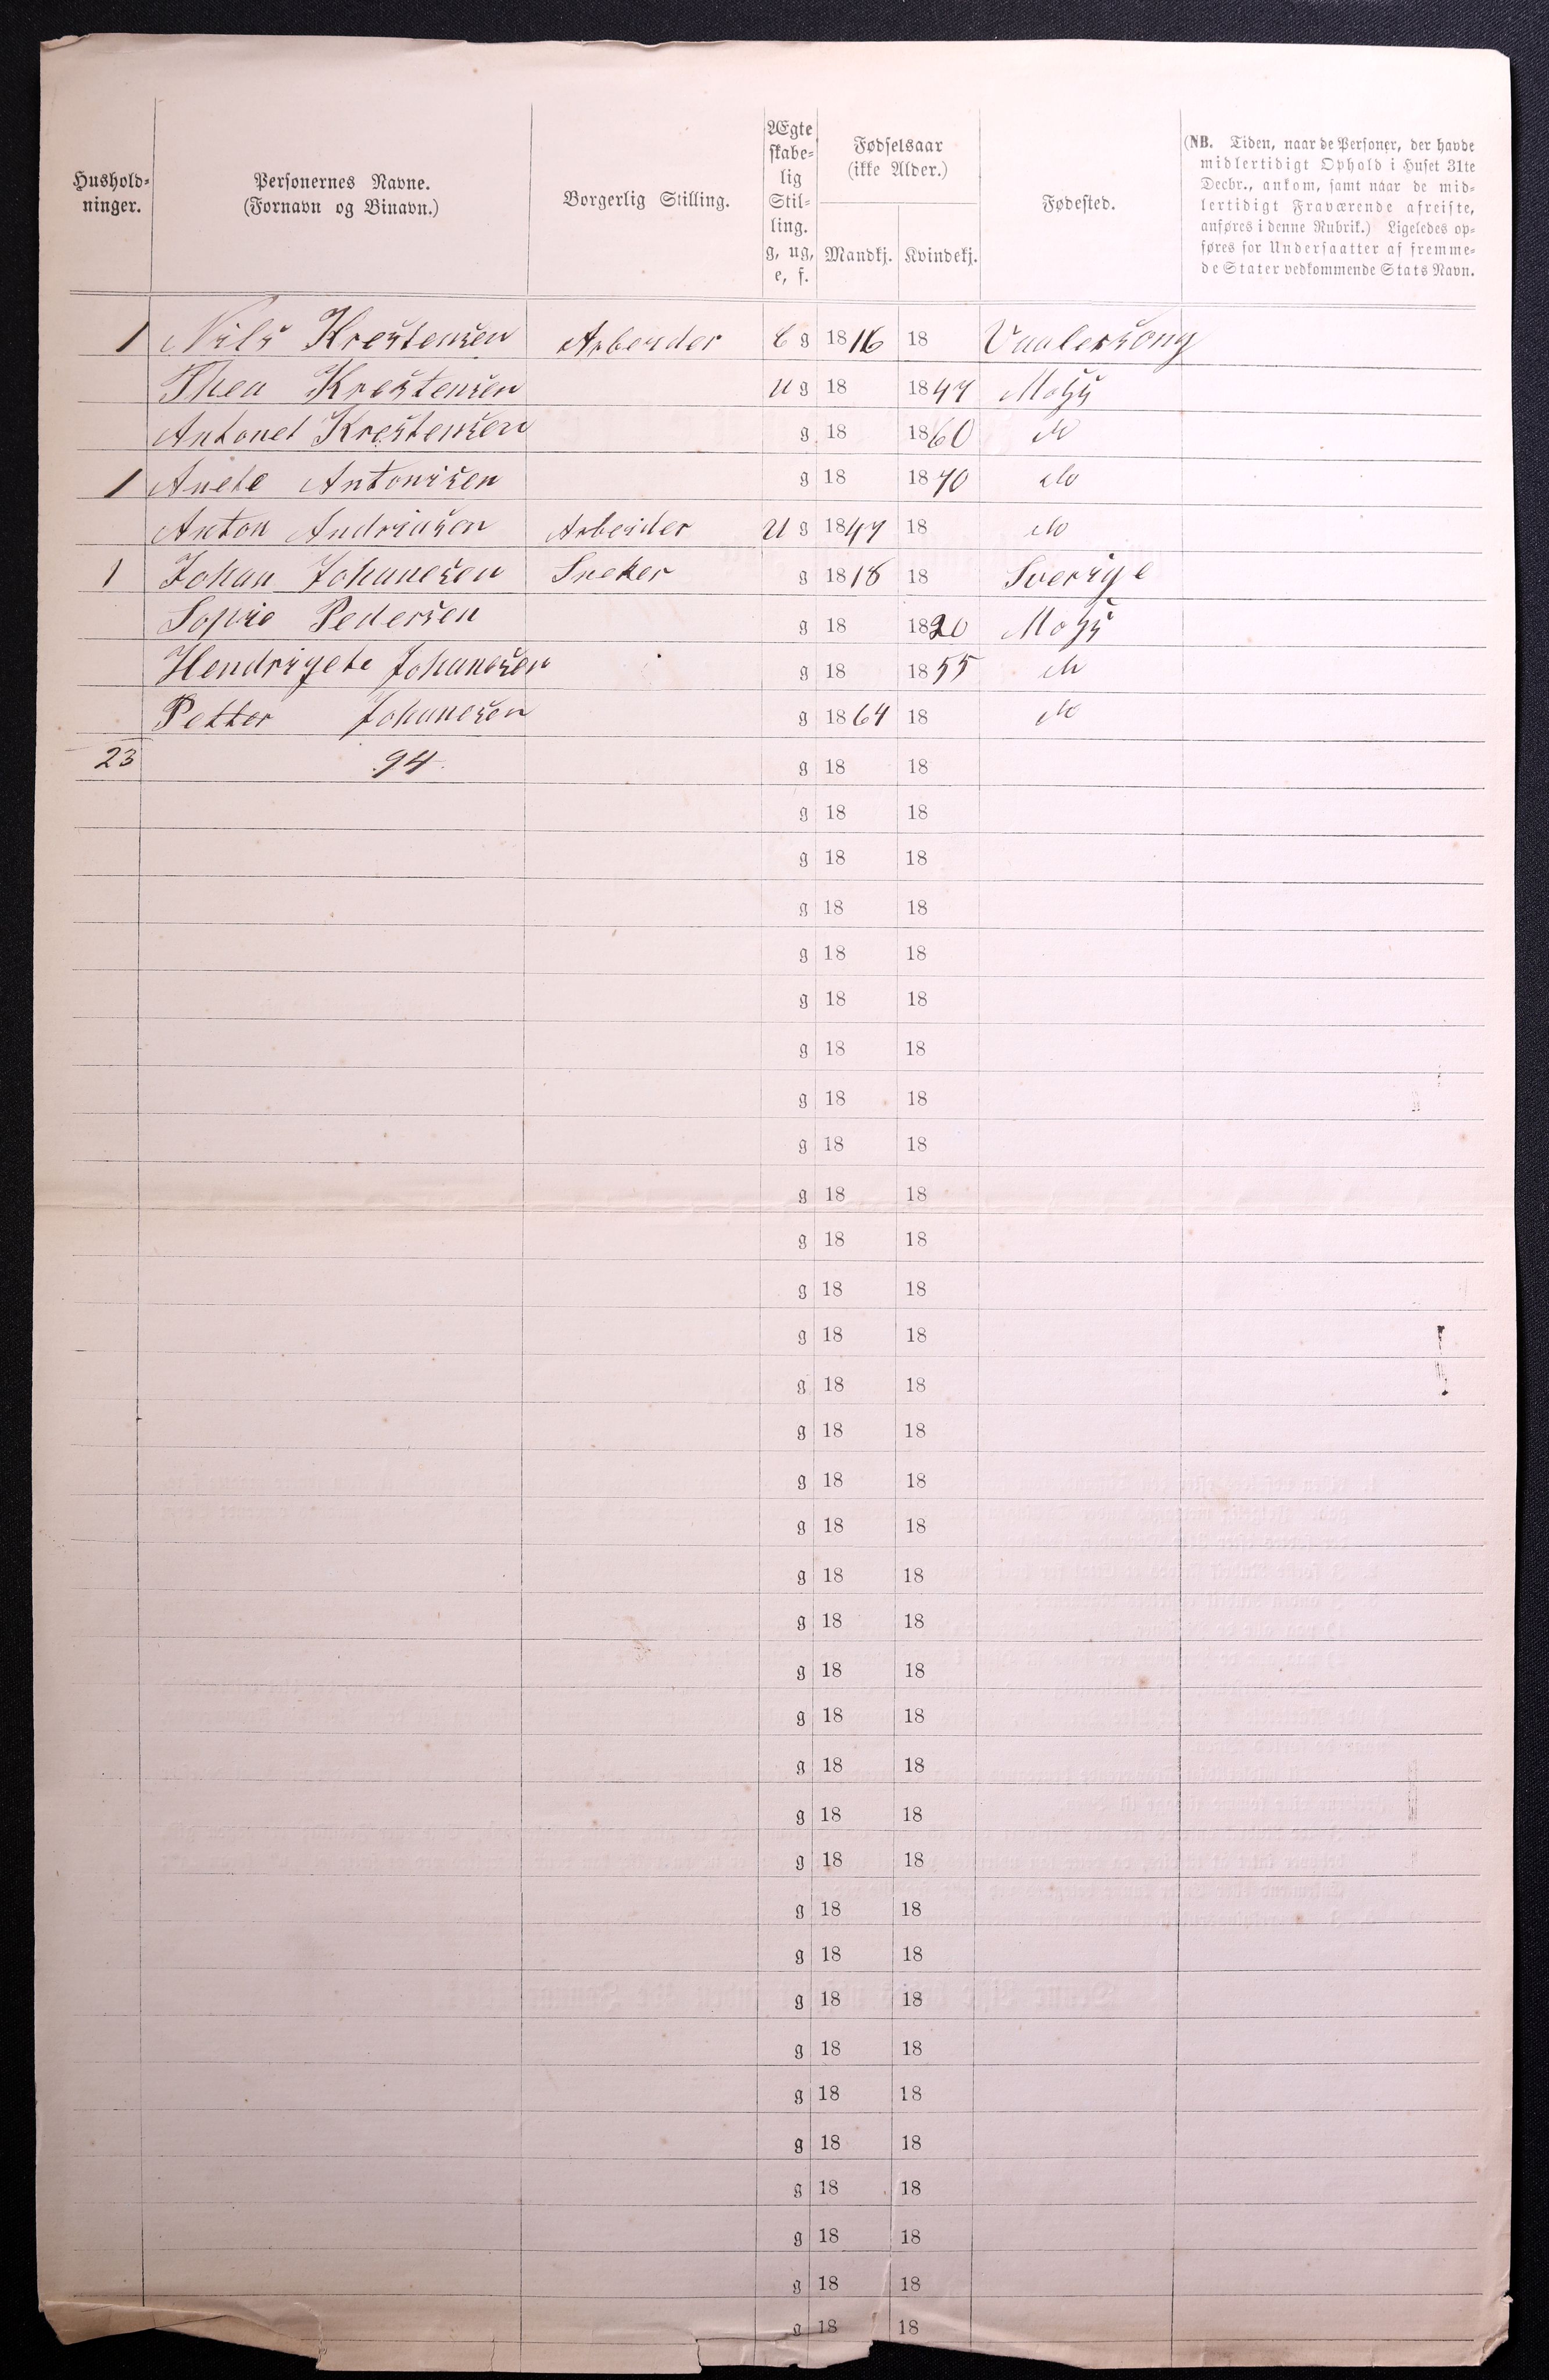 Hushold-
ninger.
Personernes Navne.
(Fornavn og Binavn.)
Borgerlig Stilling.
Ægte
skabe-
lig
Stil-
ling.
g, ug,
e, f.
Fødselsaar
(ikke Alder.)
Mandkj. Kvindekj.
Fødested.
(NB. Tiden, naar de Personer, der havde
midlertidigt Ophold i Huset 31te
Decbr., ankom, samt naar de mid-
lertidigt Fraværende afreiste,
anføres i denne Rubrik.) Ligeledes op-
føres for Undersaatter af fremme-
de Stater vedkommende Stats Navn.
1 Nils Krestensen Arbeider E g 1816 18 Vaalersong
Thea Krestensen u g 18 1847 Moss
Antonet Krestensen g 18 1860 do
1 Anete Antonisen g 18 1870 do
Anton Andriasen Arbeider U g 1847 18 do
1 Johan Johanesen Sneker g 1818 18 Sverige
Sopie Pedersen g 18 1820 Moss
Hendrigete Johanesen g 18 1855 do
Petter Johanesen g 1864 18 do
23 94 g 18 18
g 18 18
g 18 18
g 18 18
g 18 18
g 18 18
g 18 18
g 18 18
g 18 18
g 18 18
g 18 18
g 18 18
g 18 18
g 18 18
g 18 18
g 18 18
g 18 18
g 18 18
g 18 18
g 18 18
g 18 18
g 18 18
g 18 18
g 18 18
g 18 18
g 18 18
g 18 18
g 18 18
g 18 18
g 18 18
g 18 18
g 18 18
g 18 18
g 18 18